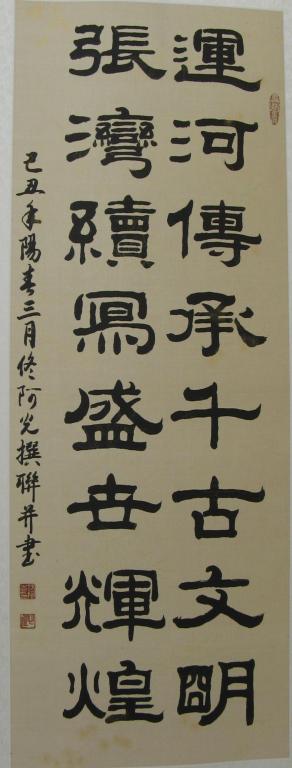 運河傳承千古文明
張灣續寫盛世輝煌
己丑年陽春三月佟阿光撰聯并書